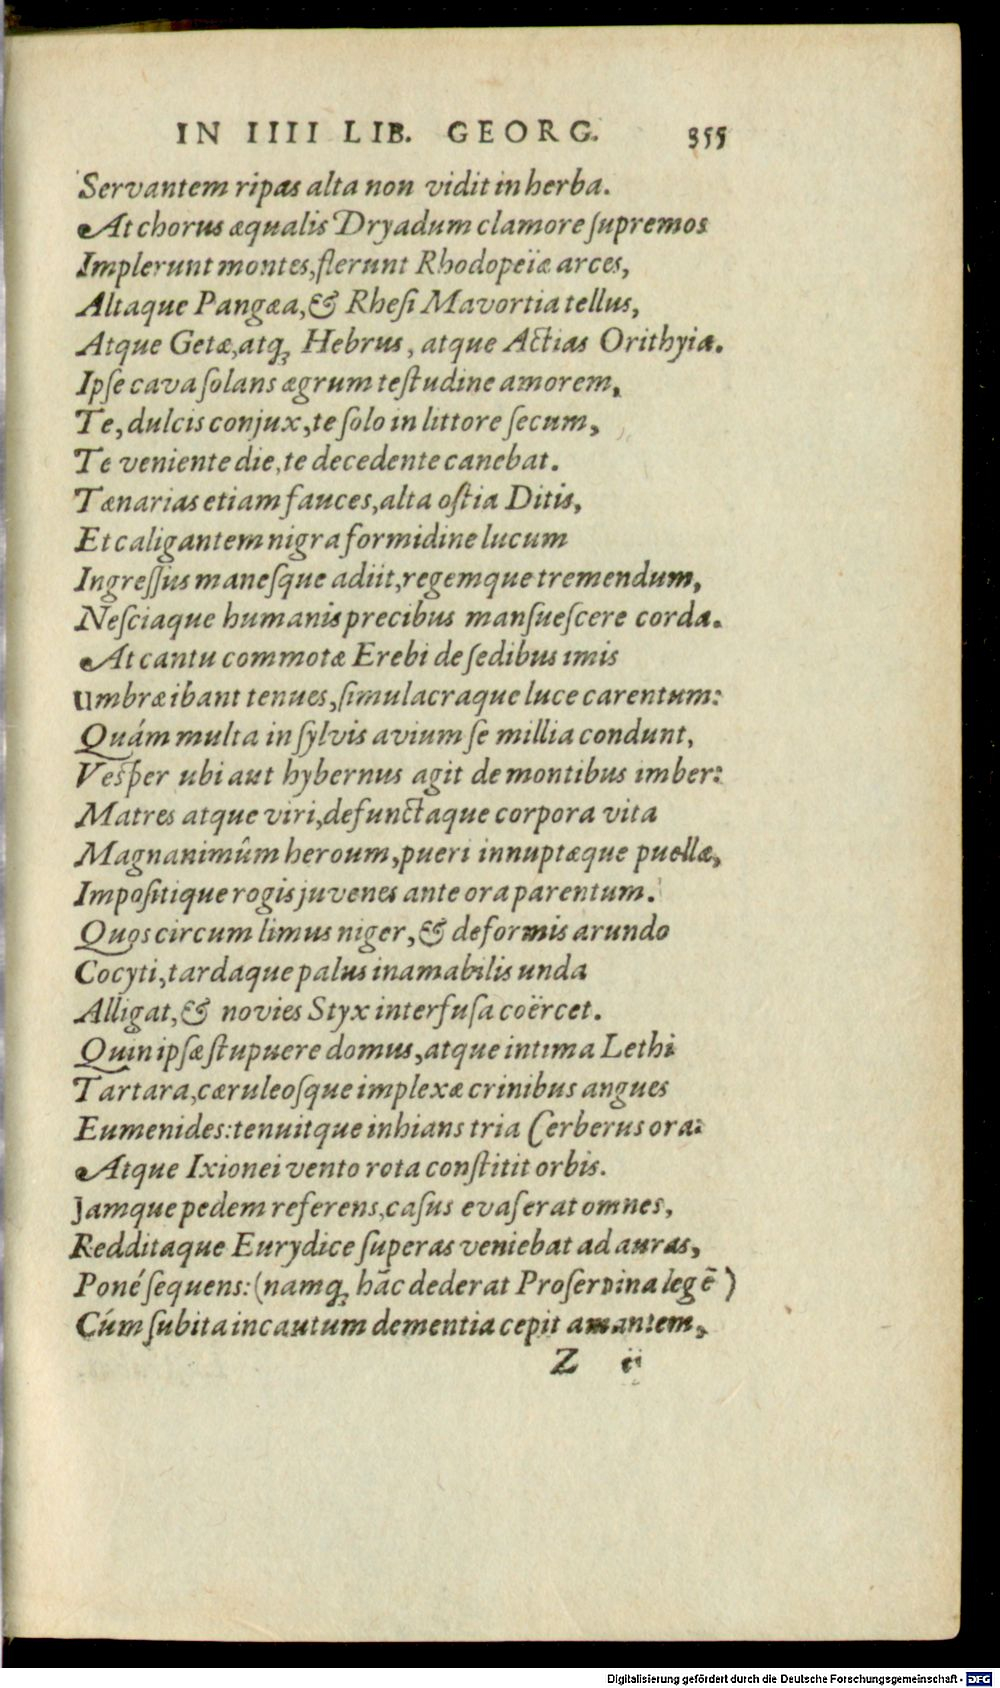 IN IIII LIB. GEORG. 355
Servantem ripas alta non vidit in herba.
At chorus æqualis Dryadum clamore ſupremos
Implerunt montes, flerunt Rhodopeïæ arces,
Altaque Pangæa, & Rheſi Mavortia tellus,
Atque Getæ, atq; Hebrus, atque Actias Orithyia.
Ipſe cava ſolans ægrum teſtudine amorem,
Te, dulcis conjux, te ſolo in littore ſecum,
Te veniente die, te decedente canebat.
Tænarias etiam fauces, alta oſtia Ditis,
Et caligantem nigra formidine lucum
Ingreſſus maneſque adiit, regemque tremendum,
Neſciaque humanis precibus manſueſcere corda.
At cantu commotæ Erebi de ſedibus imis
Umbræ ibant tenues, ſimulacraque luce carentum:
Quám multa in ſylvis avium ſe millia condunt,
Veſper ubi aut hybernus agit de montibus imber:
Matres atque viri, defunctaque corpora vita
Magnanimûm heroum, pueri innuptæque puellæ,
Impoſitique rogis juvenes ante ora parentum.
Quos circum limus niger, & deformis arundo
Cocyti, tardaque palus inamabilis unda
Alligat, & novies Styx interfuſa coërcet.
Quin ipſæ ſtupuere domus, atque intima Lethi
Tartara, cæruleoſque implexæ crinibus angues
Eumenides: tenuitque inhians tria Cerberus ora:
Atque Ixionei vento rota conſtitit orbis.
Jamque pedem referens, caſus evaſerat omnes,
Redditaque Eurydice ſuperas veniebat ad auras,
Poné ſequens: (namq; hāc dederat Proſerpina legē)
Cúm ſubita incautum dementia cepit amantem,
Z ii
Digitalisierung gefördert durch die Deutsche Forschungsgemeinschaft - DFG